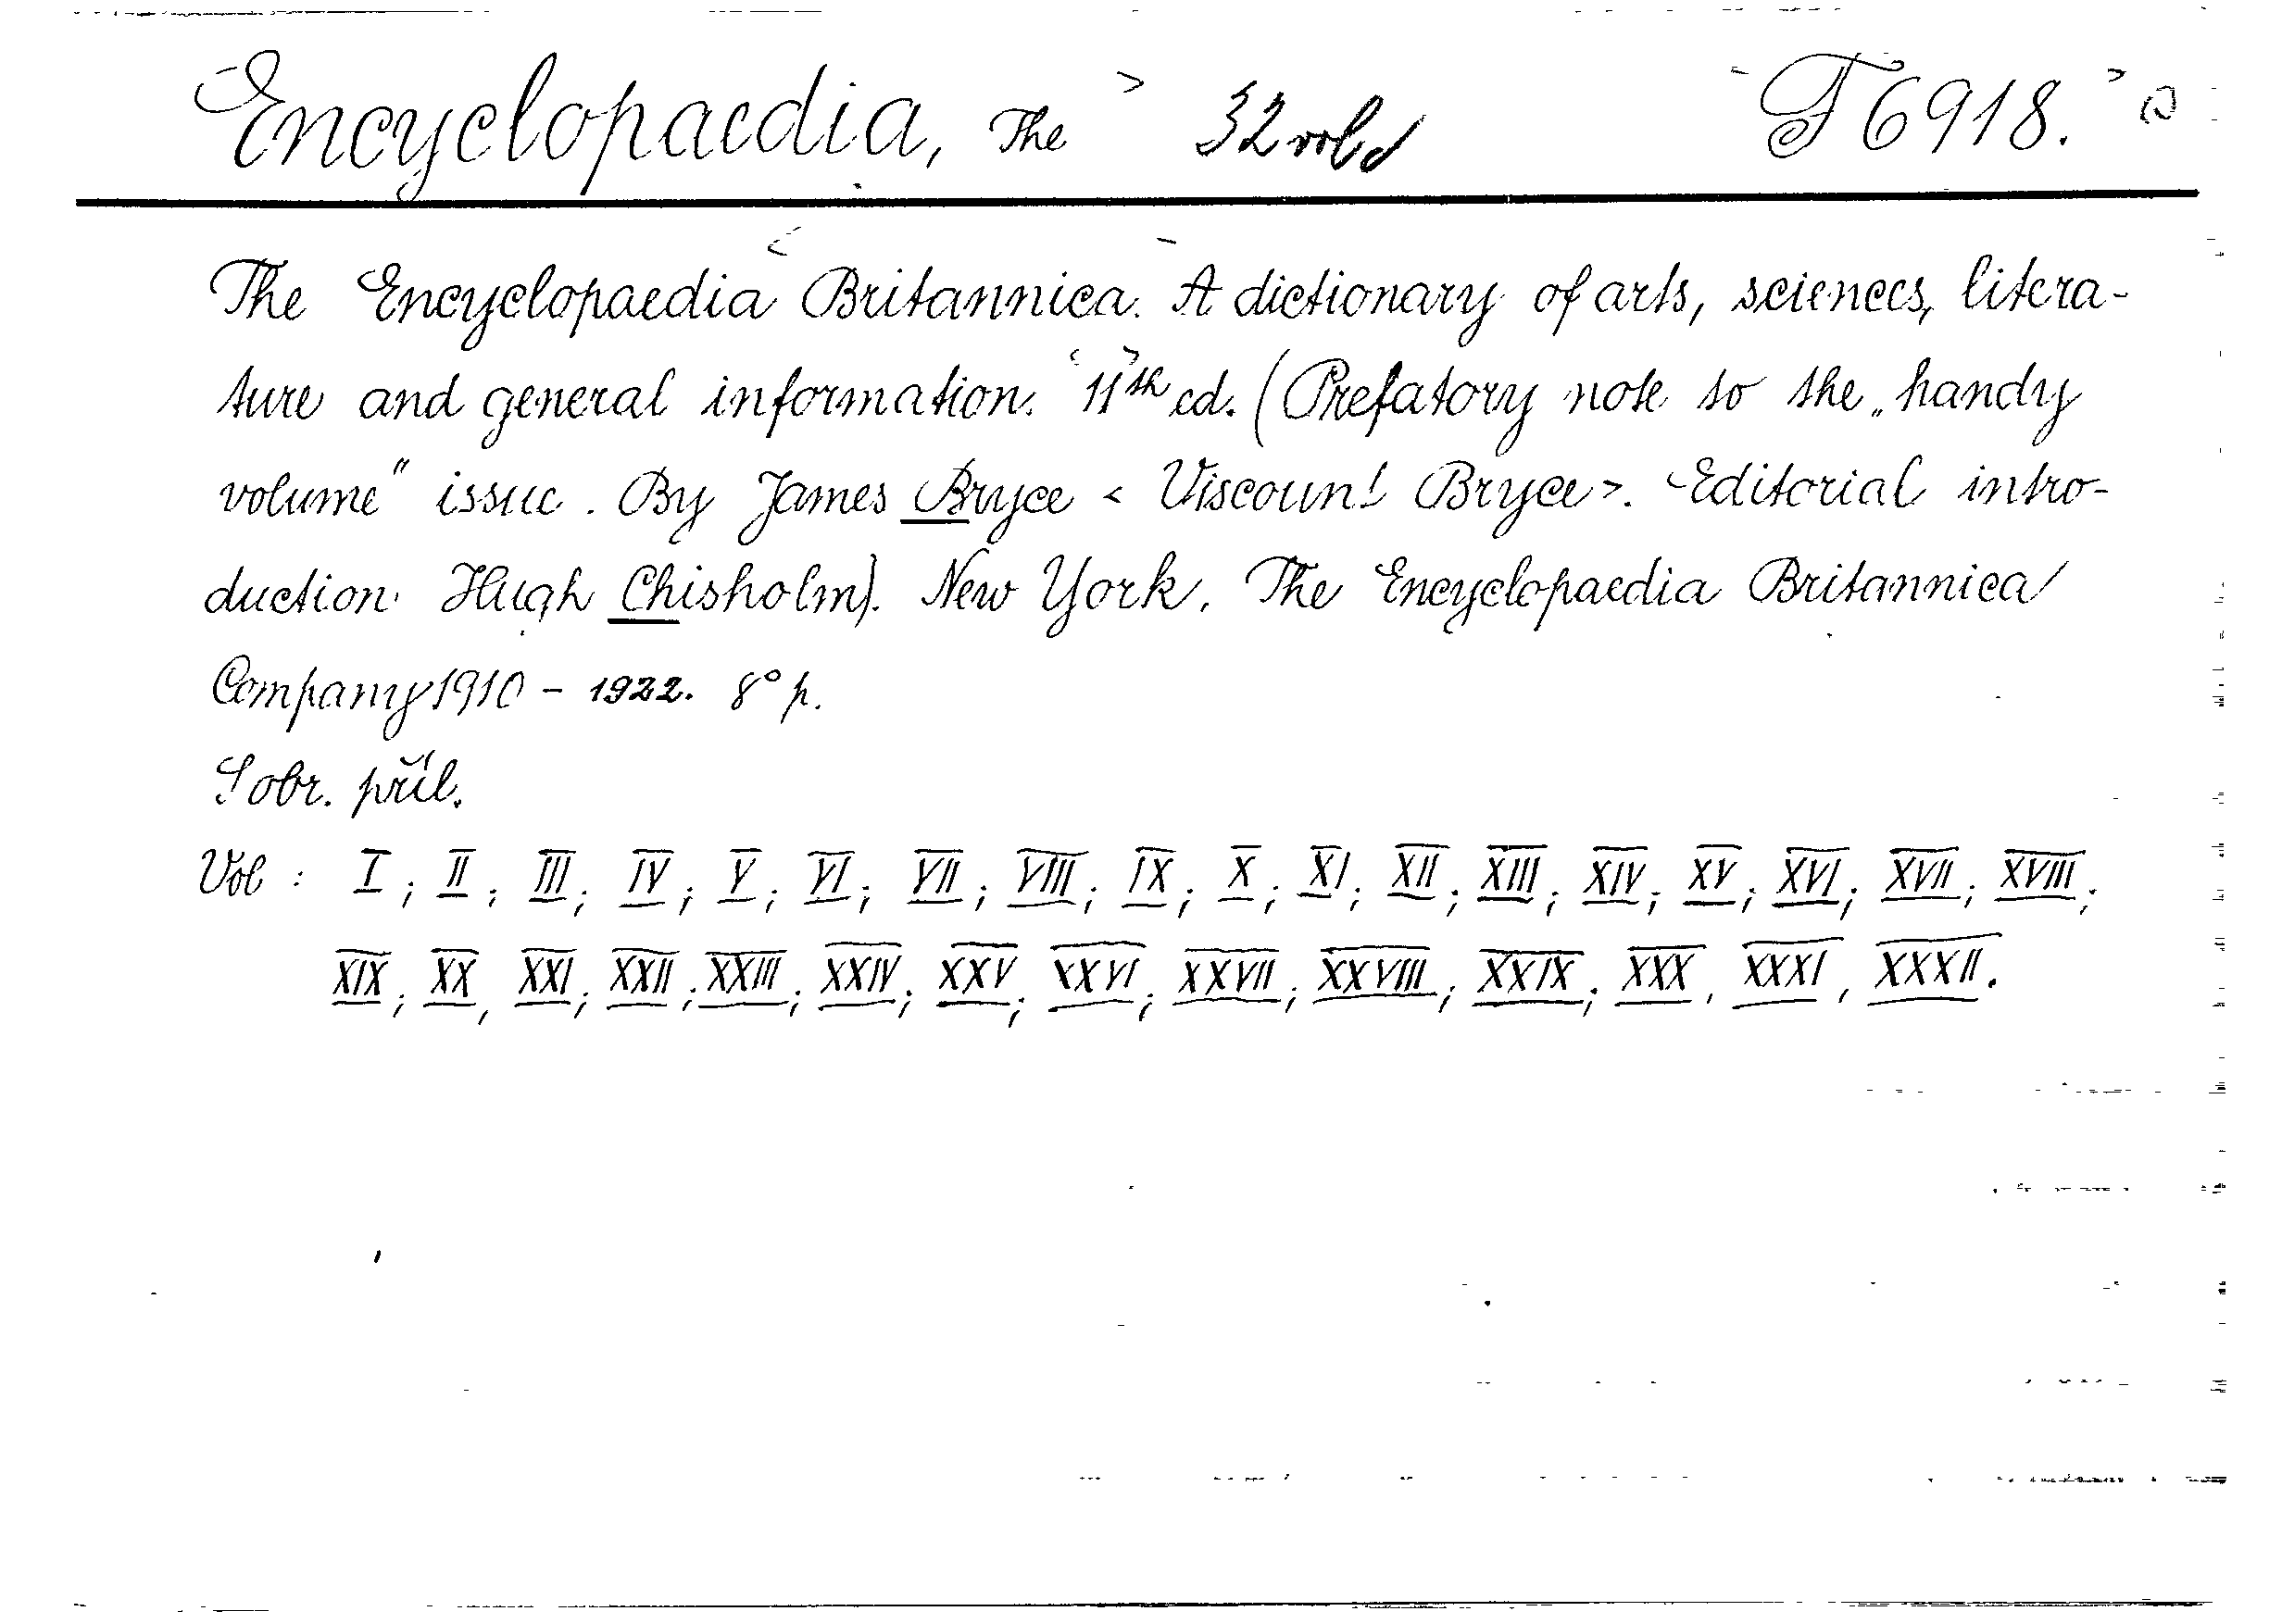 Encyclopaedia, The T 6918.
The Encyclopaedia Britannica. A dictionary of arts, sciences, litera-
ture and general information. 11th ed. (Prefatory note to the „handy
volume" issue. By James Bryce < Viscount Bryce >. Editorial intro-
duction. Hugh Chisholm). New York, The Encyclopaedia Britannica
Company 1910 - 1922. 8° p.
S obr. příl.
Vol : I ; II ; III ; IV ; V ; VI ; VII ; VIII ; IX ; X ; XI ; XII ; XIII ; XIV ; XV ; XVI ; XVII ; XVIII ;
XIX ; XX , XXI ; XXII ; XXIII ; XXIV ; XXV ; XXVI ; XXVII ; XXVIII ; XXIX ; XXX , XXXI , XXXII .